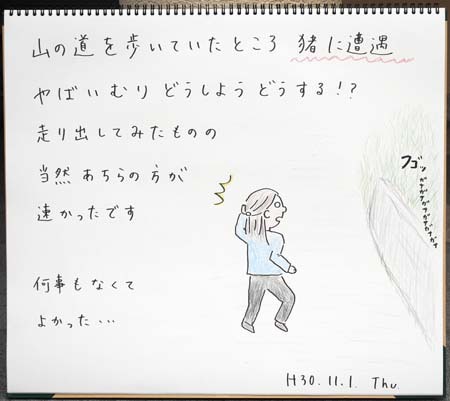 山の道を歩いていたところ 猪に遭遇
やばいむり どうしよう どうする!?
走り出してみたものの
当然 あちらの方が
速かったです
何事もなくて
よかった…
フゴッ
H30.11.1. Thu.